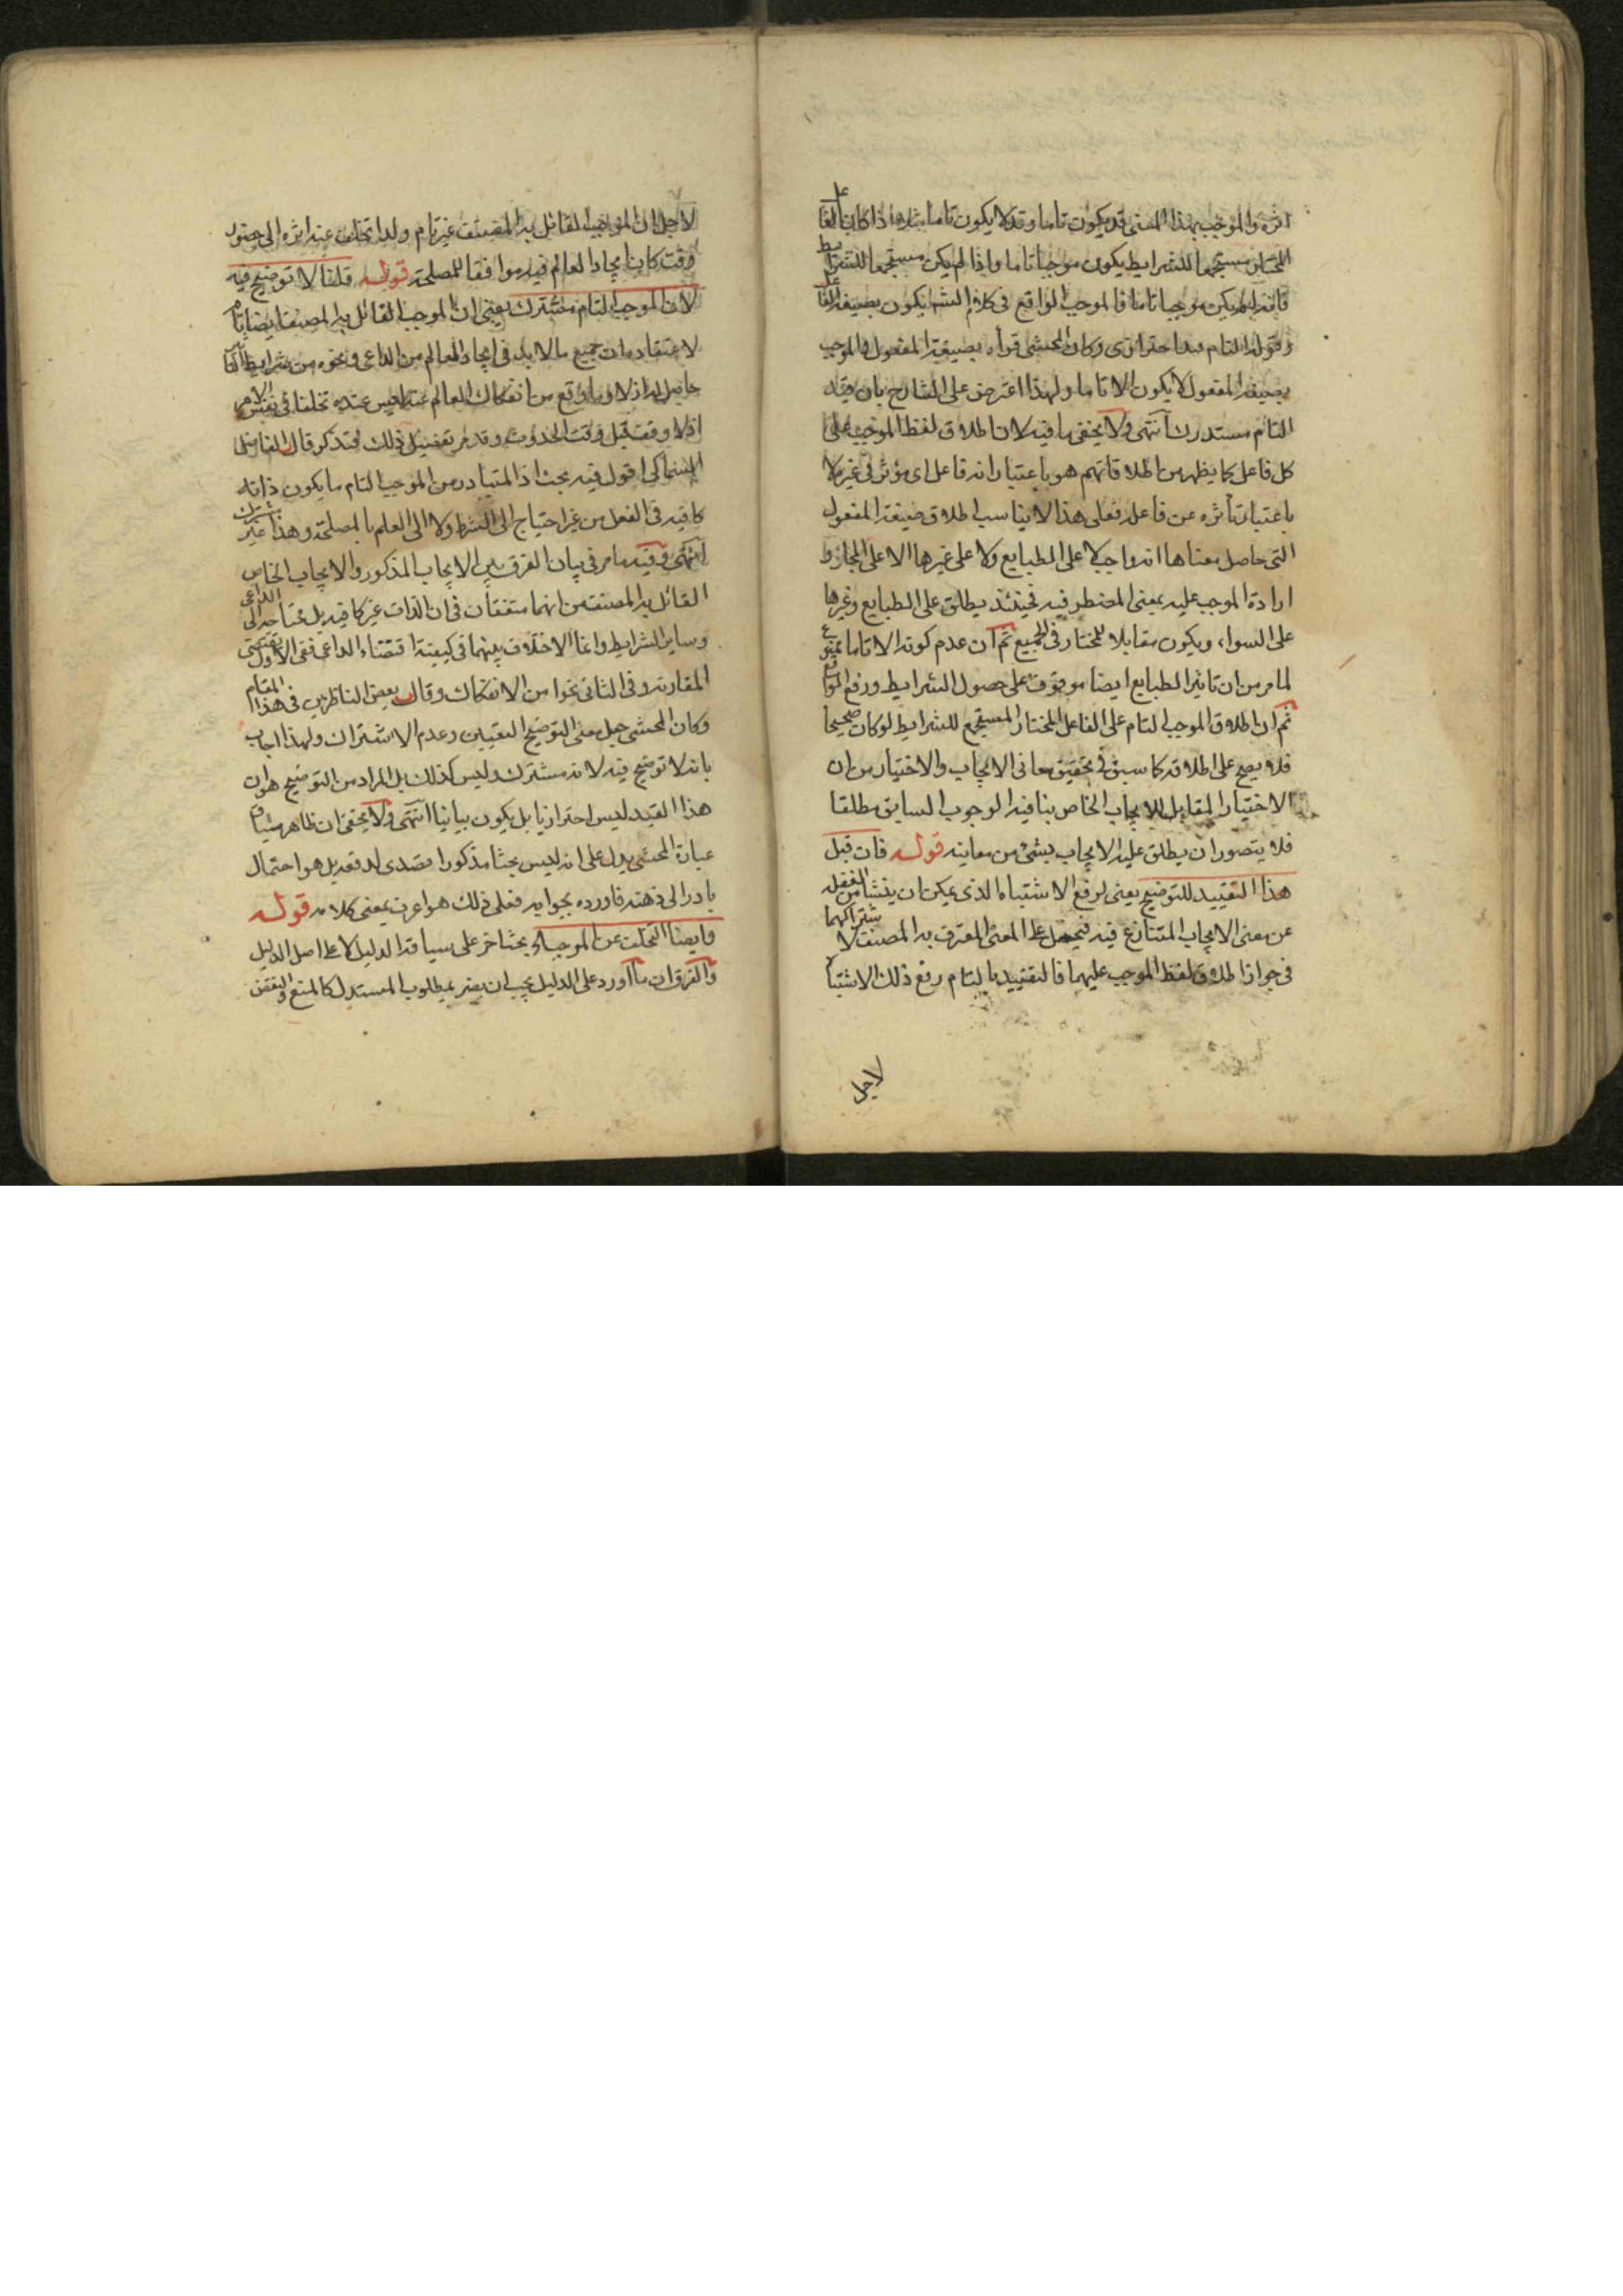 اثره والموجب بهذا المعنى قد يكون تاما وقد لا يكون تاما بناء اذا كان الفاعل
المختار مستجمعا للشرايط يكون موجبا تاما واذا لم يكن مستجمعا للشرايط
فانه لم يكن موجبا تاما فالموجب الواقع فى كلام الشم يكون بصيغة الفاعل
وقوله التام قيد احترازى وكان المحشى قرأه بصيغة المفعول والموجب
بصيغة المفعول لا يكون الا تاما ولهذا اعترض على الشارح بان قيد
التام مستدرك انتهى ولا يخفى ما فيه لان اطلاق لفظ الموجب على
كل فاعل كما يظهر من اطلاقاتهم هو باعتبار انه فاعل اى مؤثر فى غيره لا
باعتبار تأثره عن فاعله فعلى هذا لا يناسب اطلاق صيغة المفعول
التى حاصل معناها انه واجب لا على الطبايع ولا على غيرها الا على المجاز و
ارادة الموجب عليه بمعنى المضطر فيه فحينئذ يطلق على الطبايع وغيرها
على السواء ويكون مقابلا للمختار فى الجميع ثم ان عدم كونه الا تاما ممنوع
لما مر من ان تاثير الطبايع ايضا موقوف على حصول الشرايط ورفع الموانع
ثم ان اطلاق الموجب التام على الفاعل المختار المستجمع للشرايط لو كان صحيحا
فلا يصح على اطلاقه كما سبق فى تحقيق معانى الايجاب والاختيار من ان
الاختيار المقابل للايجاب الخاص ينافيه الوجوب السابق مطلقا
فلا يتصور ان يطلق عليه الايجاب بشئ من معانيه قوله فان قيل
هذا التقييد للتوضيح يعنى لرفع الاشتباه الذى يمكن ان ينشأ من الغفلة
عن معنى الايجاب المتنازع فيه فيحمل على المعنى المعترف به المصنف لاشتراكهما
فى جواز اطلاق لفظ الموجب عليهما فالتقييد بالتام رفع ذلك الاشتباه
لاجل
لاجل ان الموجب القائل به المصنف غير تام ولذا تخلف عنه اثره الى حصول
وقت كان ايجاد العالم فيه موافقا للمصلحة قوله قلنا لا توضيح فيه
لان الموجب التام مشترك يعنى ان الموجب القائل به المصنف ايضا تام
لاعتقاده ان جميع ما لا بد فى ايجاد العالم من الداعى ونحوه من شرايط التأثير
حاصل له ازلا وما وقع من انفكاك العالم عنه ليس عنده تخلفا فى نفس الامر
اذ لا وقت قبل وقت الحدوث وقد مر تفصيل ذلك فتذكر قال الفاضل
السماكى اقول فيه بحث اذ المتبادر من الموجب التام ما يكون ذاته
كافيه فى الفعل من غير احتياج الى الشرط ولا الى العلم بالمصلحة وهذا غير مشترك
انتهى وفيه ما مر فى بيان الفرق بين الايجاب المذكور والايجاب الخاص
القائل به المصنف من انهما متفقان فى ان الذات غير كافيه بل محتاجة الى الداعى
وساير الشرايط وانما الاختلاف بينهما فى كيفية اقتضاء الداعى ففى الاول يقتضى
المقارنة وفى الثانى نحوا من الانفكاك وقال بعض الناظرين فى هذا المقام
وكان المحشى جعل معنى التوضيح التعيين وعدم الاشتراك ولهذا اجاب
بانه لا توضيح فيه لانه مشترك وليس كذلك بل المراد من التوضيح هو ان
هذا القيد ليس احترازيا بل يكون بيانيا انتهى ولا يخفى ان ظاهر سياق
عبارة المحشى يدل على انه ليس بحثا مذكورا تصدى لدفعه بل هو احتمال
بادر الى ذهنه فاورده بجوابه فعلى ذلك هو اعرف بمعنى كلامه قوله
وايضا التخلف عن الموجب اه بحث اخر على سياقة الدليل لا على اصل الدليل
والفرق ان ما اورد على الدليل يجب ان يضر بمطلوب المستدل كالمنع والنقض